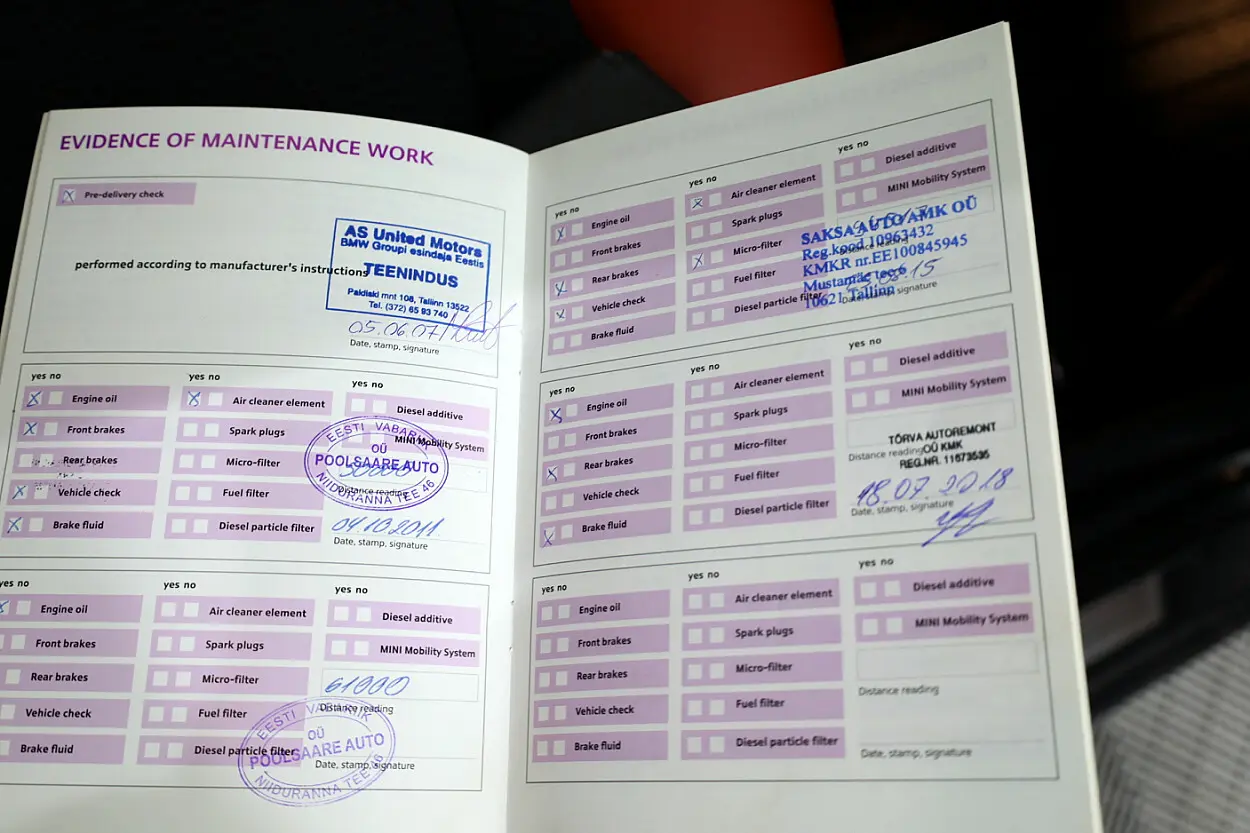 EVIDENCE OF MAINTENANCE WORK
Pre-delivery check
performed according to manufacturer's instructions
AS United Motors
BMW Groupi esindaja Eestis
TEENINDUS
Paldiski mnt 108, Tallinn 13522
Tel. (372) 65 93 740
05.06.07
Date, stamp, signature
yes no
Engine oil
Front brakes
Rear brakes
Vehicle check
Brake fluid
yes no
Air cleaner element
Spark plugs
Micro-filter
Fuel filter
Diesel particle filter
yes no
Diesel additive
MINI Mobility System
EESTI VABARIIK
OÜ
POOLSAARE AUTO
NIIDURANNA TEE 46
50000
Distance reading
04.10.2011
Date, stamp, signature
yes no
Engine oil
Front brakes
Rear brakes
Vehicle check
Brake fluid
yes no
Air cleaner element
Spark plugs
Micro-filter
Fuel filter
Diesel particle filter
yes no
Diesel additive
MINI Mobility System
61000
Distance reading
EESTI VABARIIK
OÜ
POOLSAARE AUTO
NIIDURANNA TEE 46
Date, stamp, signature
yes no
Engine oil
Front brakes
Rear brakes
Vehicle check
Brake fluid
yes no
Air cleaner element
Spark plugs
Micro-filter
Fuel filter
Diesel particle filter
yes no
Diesel additive
MINI Mobility System
SAKSA AUTO AMK OÜ
Reg.kood 10963432
KMKR nr.EE100845945
Mustamäe tee 6
10621 Tallinn
Distance reading
08.15
Date, stamp, signature
yes no
Engine oil
Front brakes
Rear brakes
Vehicle check
Brake fluid
yes no
Air cleaner element
Spark plugs
Micro-filter
Fuel filter
Diesel particle filter
yes no
Diesel additive
MINI Mobility System
TÕRVA AUTOREMONT
OÜ KMK
REG.NR. 11673535
Distance reading
18.07.2018
Date, stamp, signature
yes no
Engine oil
Front brakes
Rear brakes
Vehicle check
Brake fluid
yes no
Air cleaner element
Spark plugs
Micro-filter
Fuel filter
Diesel particle filter
yes no
Diesel additive
MINI Mobility System
Distance reading
Date, stamp, signature